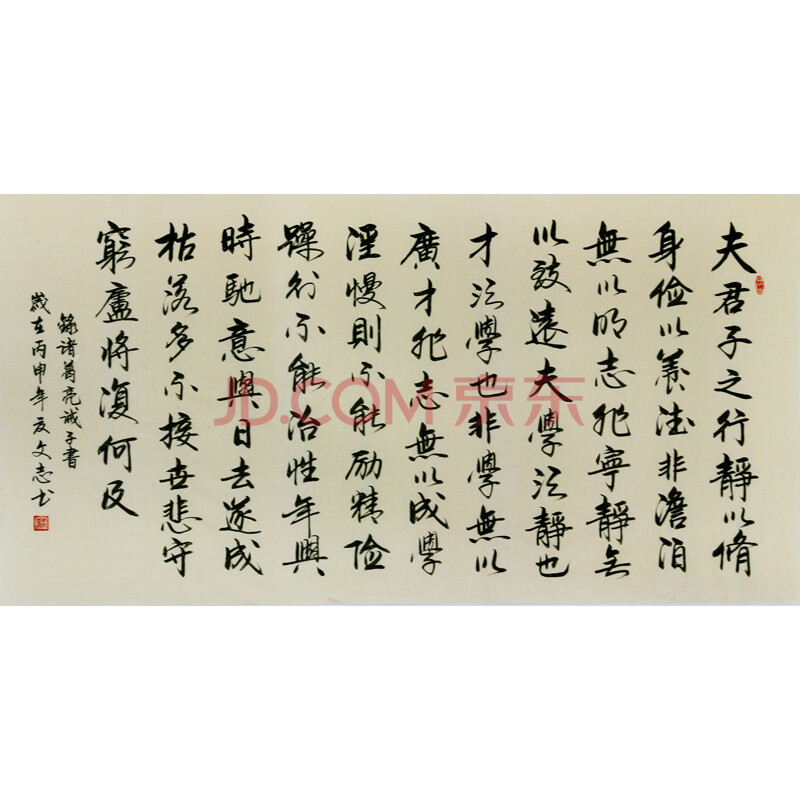 夫君子之行靜以脩
身俭以養德非澹泊
無以明志非寧靜無
以致遠夫學須靜也
才須學也非學無以
廣才非志無以成學
淫慢則不能励精险
躁則不能治性年與
時馳意與日去遂成
枯落多不接世悲守
窮廬將复何及
錄诸葛亮诫子書
歲在丙申年夏文志书
JD.COM 京东